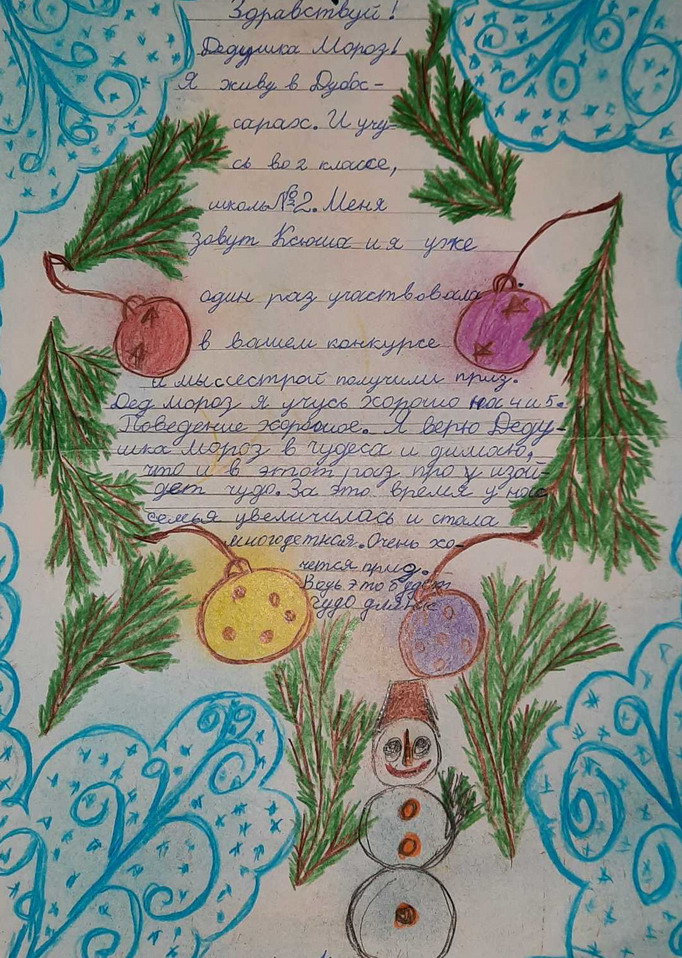 Здравствуй!
Дедушка Мороз!
Я живу в Дубос-
сарах. И учу-
сь во 2 классе,
школы №2. Меня
зовут Ксюша и я уже
один раз участвовала
в вашем конкурсе
и мы с сестрой получили приз.
Дед Мороз я учусь хорошо на 4 и 5.
Поведение хорошое. Я верю Деду-
шка Мороз в чудеса и думаю,
что и в этот раз про у изой-
дет чудо. За это время у нас
семья увеличилась и стала
многодетная. Очень хо-
чется приз.
Ведь это будет
чудо для нас